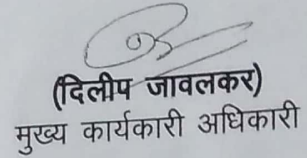 (दिलीप जावलकर)
मुख्य कार्यकारी अधिकारी